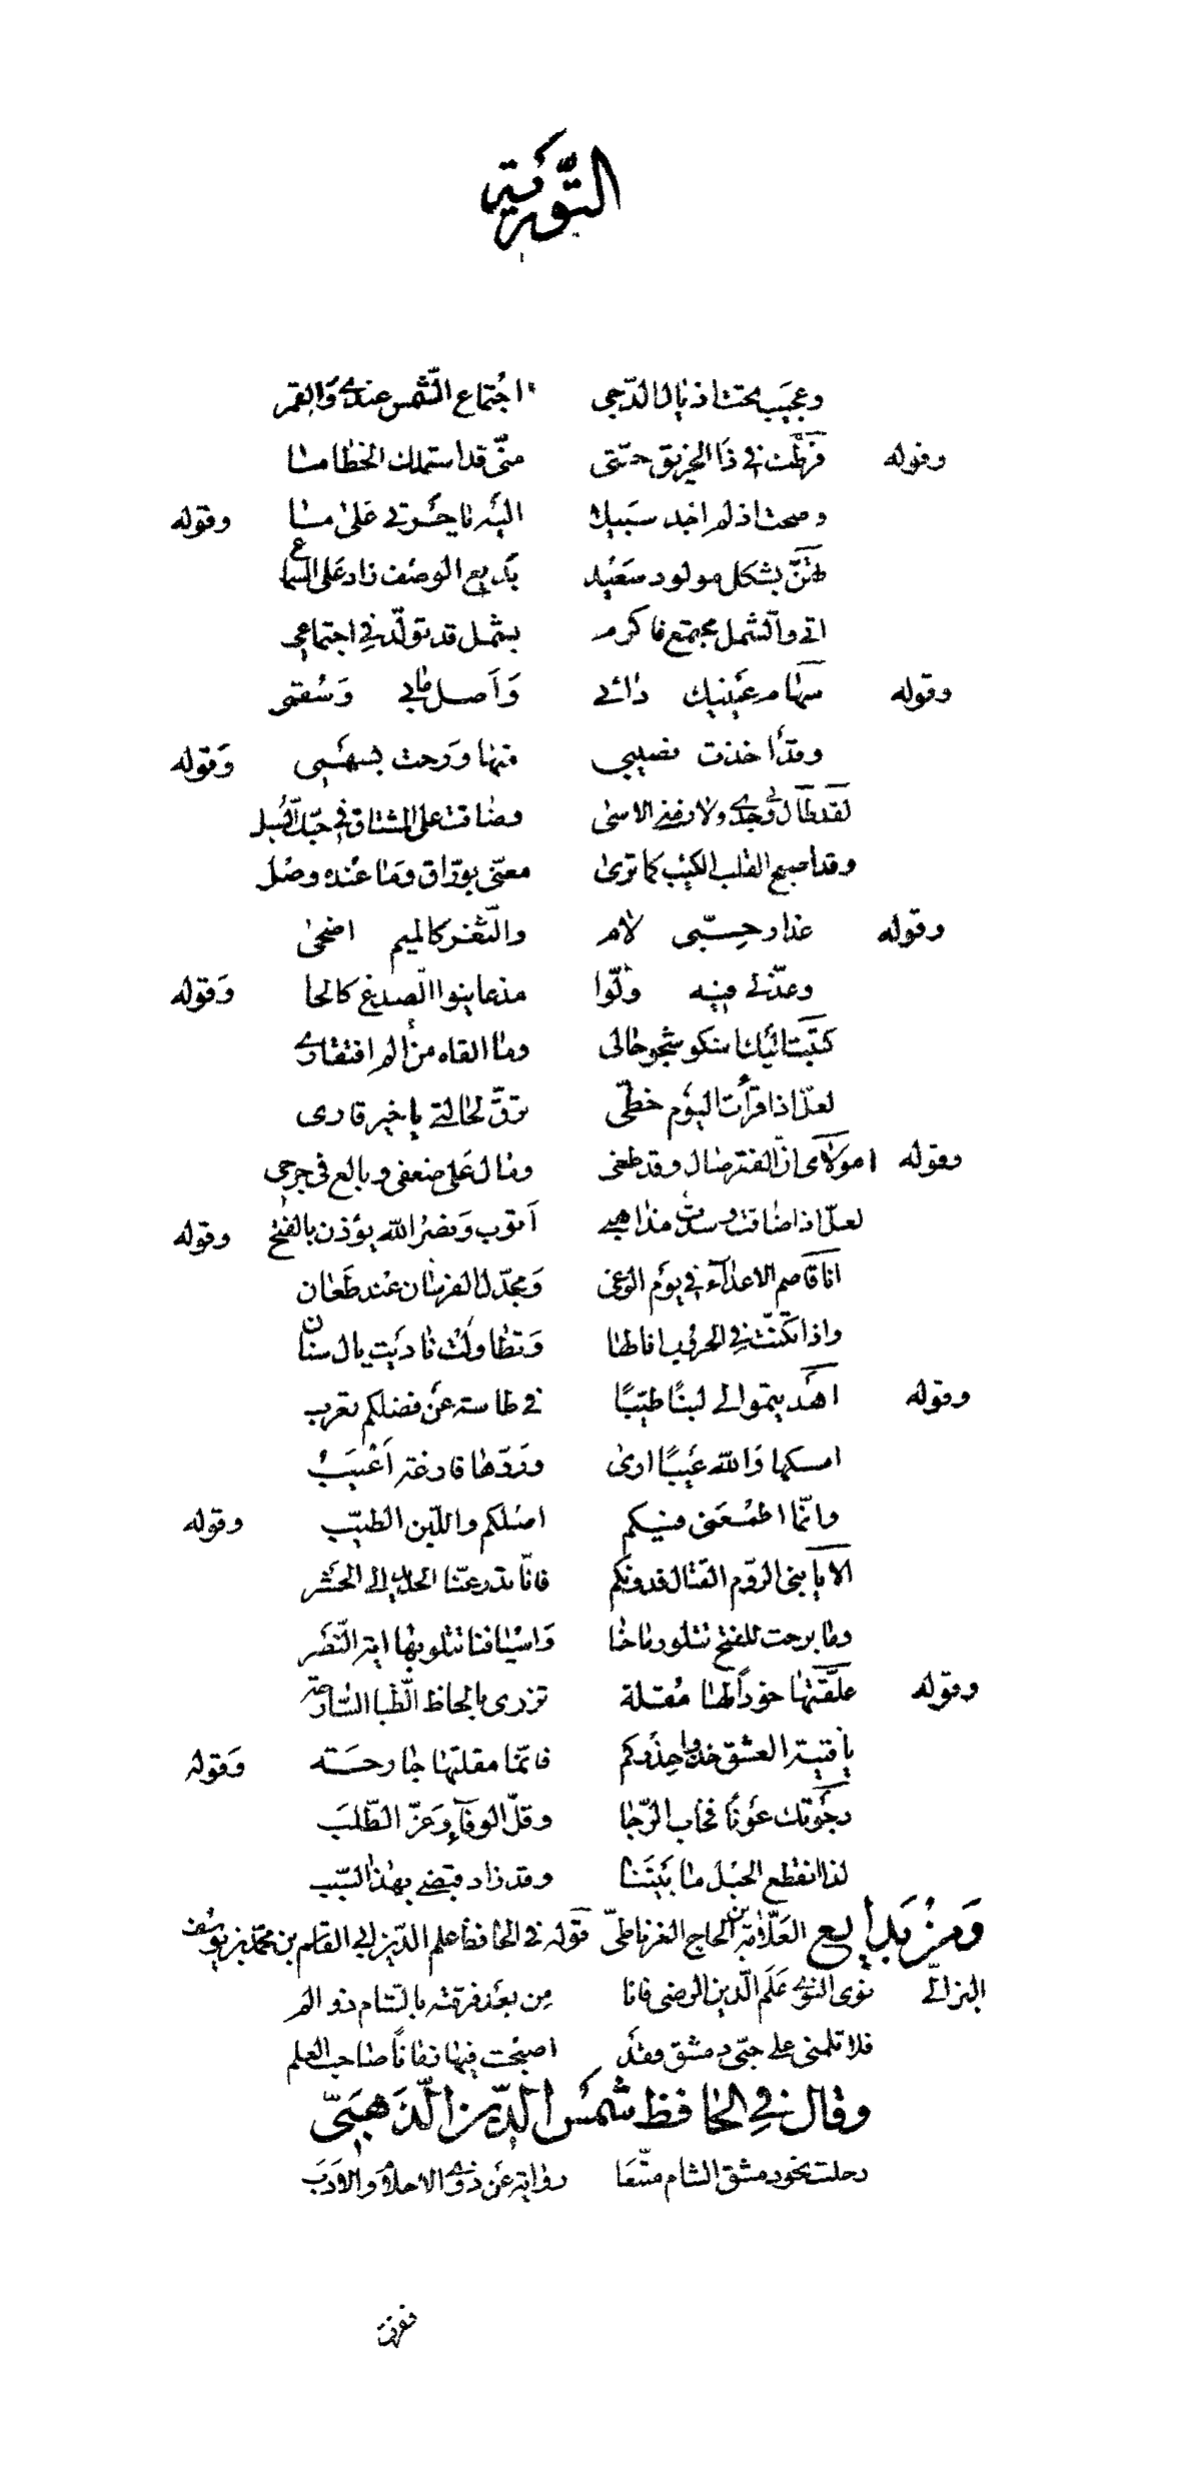 التورية
وعجيب تحت اذيال الدجى اجتماع الشمس عندى والقمر
وقوله فرطت في ذا الخريق حتى منى قد استملك الخطا منا
وصحت اذ لم اجد سبيلا اليه يا حسرتي على ما وقوله
تهن بشكل مولود سعيد بديع الوصف زاد على السماع
اتى والشمل مجتمع فاكرم بشمل قد تولد في اجتماعي
وقوله سهام عينيك دائي واصل مابي وسقمى
وقد اخذت نصيبي منها ورحت بسهمي وقوله
لقد طال وجدى ولازمني الاسى وضاقت على المشتاق في حبك السبل
وقد اصبح القلب الكئيب كما ترى معنى بوراق وما عنده وصل
وقوله عذار حبي لام والثغر كالميم اضحى
وعذلي فيه ولوا مذ عاينوا الصدغ كالحا وقوله
كتبت اليك اشكو شجو حالى وما القاه من الم افتقارى
لعل اذا قرأت اليوم خطي ترق لحالتي يا خير قارى
وقوله امولاى ان الفقر صال وقد طغى ومال على ضعفي وبالغ في جرحي
لعل اذا ضاقت وسدت مذاهبي اتوب ونصر الله يؤذن بالفتح وقوله
انا قاصم الاعداء في يوم الوغى ومجدل الفرسان عند طعان
واذا تكنت في الحروب ابطالها وتطاولت ناديت يال سنان
وقوله اهديتموا لي لبنا طيبا في طاسة عن فضلكم تعرب
امسكها والله عيبا ارى وردها فارغة اعيب
وانما اطمعنى فيكم اصلكم واللبن الطيب وقوله
الا يا بنى الروم القتال فدونكم فانا تدرعنا الحديد الى الحشر
وما برحت للفتح تتلو رماحنا واسيافنا تتلو بها اية النصر
وقوله علقتها خودا لها مقلة تزرى بالحاظ الظبا السارحة
يا فتية العشق خذوا حذركم فانما مقلتها جارحته وقوله
رجوتك عونا فخاب الرجا وقل الوفاء وعز الطلب
لذا انقطع الحبل ما بيننا وقد زاد قبضي بهذا السبب
ومن بدايع العلامة بن الحاج الغرناطي قوله في الحافظ علم الدين ابي القاسم بن محمد بن يوسف
البرزالي نوى النوى علم الدين الرضى فانا من بعد فرقته بالشام ذو الم
فلا تلمني على حبى دمشق فقد اصبحت فيها زمانا صاحب العلم
وقال في الحافظ شمس الدين الذهبي
رحلت نحو دمشق الشام متبعا رواية عن ذوى الاحلام والادب